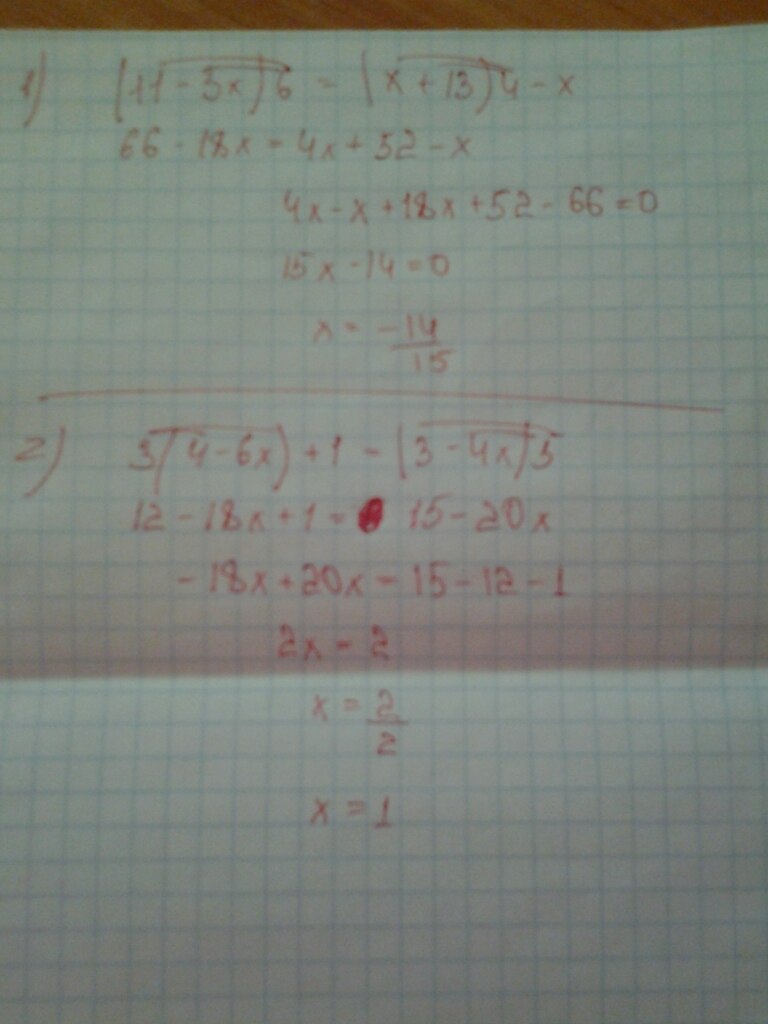 1) (11 - 3x)6 = (x + 13)4 - x
66 - 18x = 4x + 52 - x
4x - x + 18x + 52 - 66 = 0
15x - 14 = 0
x = -14/15
2) 3(4 - 6x) + 1 = (3 - 4x)5
12 - 18x + 1 = 15 - 20x
-18x + 20x = 15 - 12 - 1
2x = 2
x = 2/2
x = 1